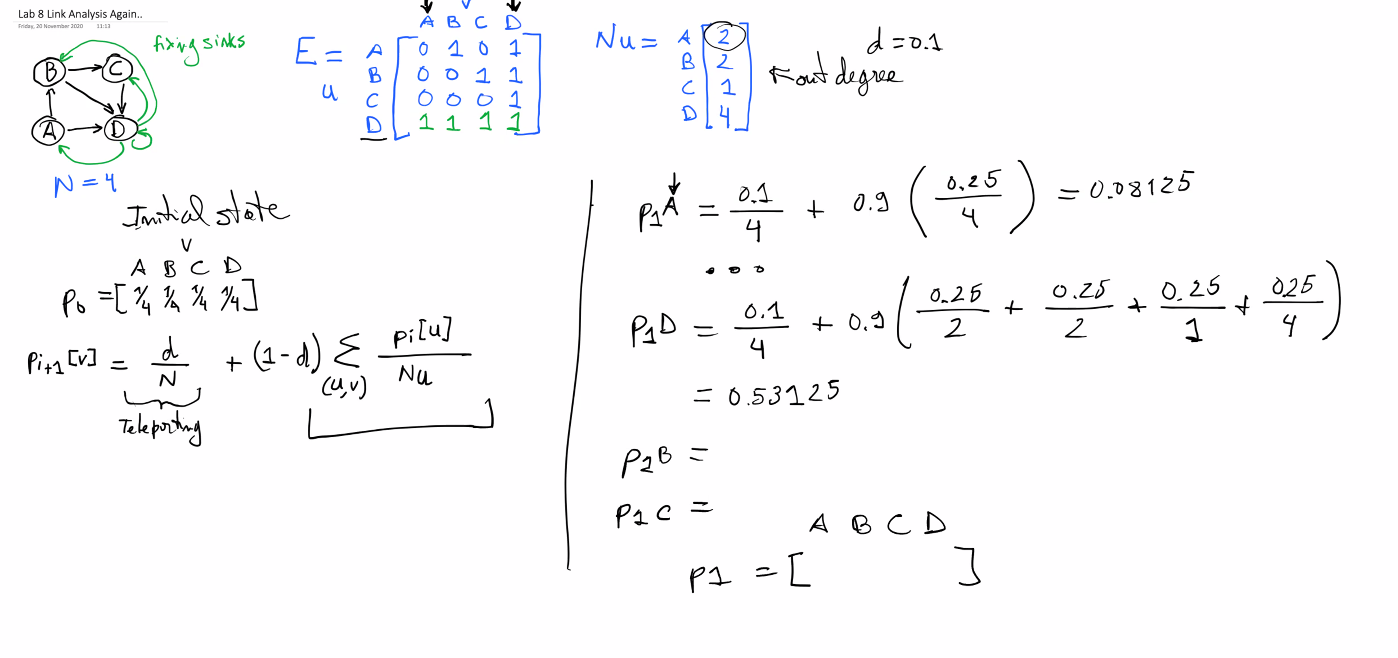 Lab 8 Link Analysis Again..
Friday, 20 November 2020 11:13
fixing sinks
B C
A D
N = 4
A B C D
E =
u
A 0 1 0 1
B 0 0 1 1
C 0 0 0 1
D 1 1 1 1
Nu =
A 2
B 2
C 1
D 4
d = 0.1
out degree
Initial state
v
A B C D
P0 = [ 1/4 1/4 1/4 1/4 ]
Pi+1 [v] = d/N + (1-d) Σ(u,v) Pi[u]/Nu
Teleporting
P1A = 0.1/4 + 0.9 ( 0.25/4 ) = 0.08125
...
P1D = 0.1/4 + 0.9 ( 0.25/2 + 0.25/2 + 0.25/1 + 025/4 )
= 0.53125
P1B =
P1C =
A B C D
P1 = [ ]